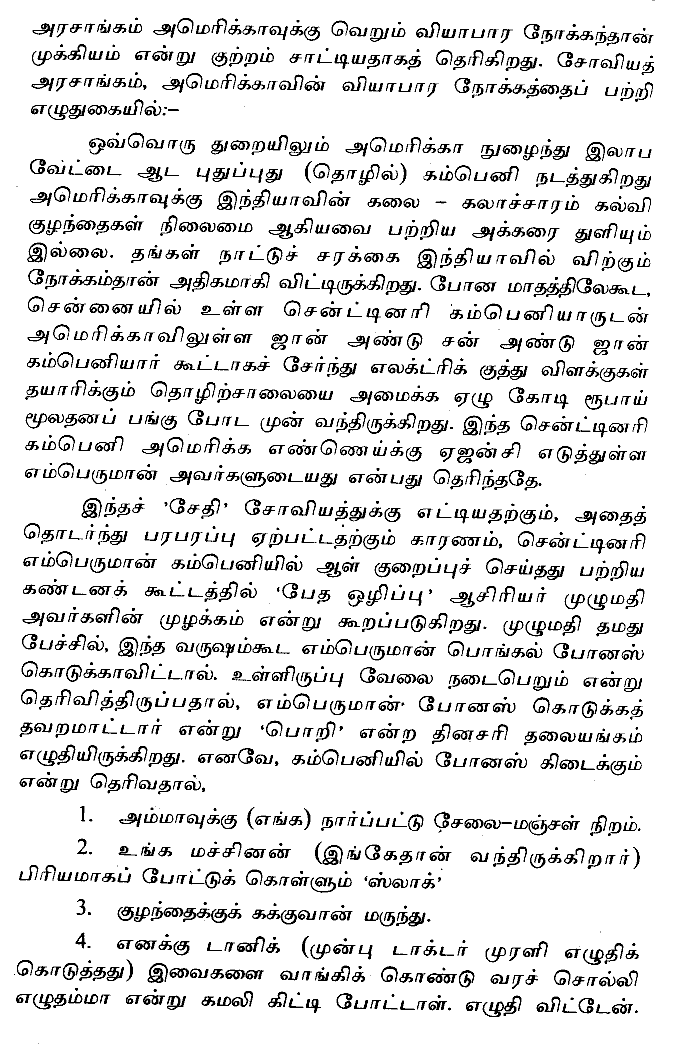 அரசாங்கம் அமெரிக்காவுக்கு வெறும் வியாபார நோக்கந்தான்
முக்கியம் என்று குற்றம் சாட்டியதாகத் தெரிகிறது. சோவியத்
அரசாங்கம், அமெரிக்காவின் வியாபார நோக்கத்தைப் பற்றி
எழுதுகையில்:–
ஒவ்வொரு துறையிலும் அமெரிக்கா நுழைந்து இலாப
வேட்டை ஆட புதுப்புது (தொழில்) கம்பெனி நடத்துகிறது
அமெரிக்காவுக்கு இந்தியாவின் கலை – கலாச்சாரம் கல்வி
குழந்தைகள் நிலைமை ஆகியவை பற்றிய அக்கரை துளியும்
இல்லை. தங்கள் நாட்டுச் சரக்கை இந்தியாவில் விற்கும்
நோக்கம்தான் அதிகமாகி விட்டிருக்கிறது. போன மாதத்திலேகூட,
சென்னையில் உள்ள சென்ட்டினரி கம்பெனியாருடன்
அமெரிக்காவிலுள்ள ஜான் அண்டு சன் அண்டு ஜான்
கம்பெனியார் கூட்டாகச் சேர்ந்து எலக்ட்ரிக் குத்து விளக்குகள்
தயாரிக்கும் தொழிற்சாலையை அமைக்க ஏழு கோடி ரூபாய்
மூலதனப் பங்கு போட முன் வந்திருக்கிறது. இந்த சென்ட்டினரி
கம்பெனி அமெரிக்க எண்ணெய்க்கு ஏஜன்சி எடுத்துள்ள
எம்பெருமான் அவர்களுடையது என்பது தெரிந்ததே.
இந்தச் 'சேதி' சோவியத்துக்கு எட்டியதற்கும், அதைத்
தொடர்ந்து பரபரப்பு ஏற்பட்டதற்கும் காரணம், சென்ட்டினரி
எம்பெருமான் கம்பெனியில் ஆள் குறைப்புச் செய்தது பற்றிய
கண்டனக் கூட்டத்தில் 'பேத ஒழிப்பு' ஆசிரியர் முழுமதி
அவர்களின் முழக்கம் என்று கூறப்படுகிறது. முழுமதி தமது
பேச்சில், இந்த வருஷம்கூட எம்பெருமான் பொங்கல் போனஸ்
கொடுக்காவிட்டால். உள்ளிருப்பு வேலை நடைபெறும் என்று
தெரிவித்திருப்பதால், எம்பெருமான் போனஸ் கொடுக்கத்
தவறமாட்டார் என்று 'பொறி' என்ற தினசரி தலையங்கம்
எழுதியிருக்கிறது. எனவே, கம்பெனியில் போனஸ் கிடைக்கும்
என்று தெரிவதால்,
1. அம்மாவுக்கு (எங்க) நார்ப்பட்டு சேலை–மஞ்சள் நிறம்.
2. உங்க மச்சினன் (இங்கேதான் வந்திருக்கிறார்)
பிரியமாகப் போட்டுக் கொள்ளும் 'ஸ்லாக்'
3. குழந்தைக்குக் கக்குவான் மருந்து.
4. எனக்கு டானிக் (முன்பு டாக்டர் முரளி எழுதிக்
கொடுத்தது) இவைகளை வாங்கிக் கொண்டு வரச் சொல்லி
எழுதம்மா என்று கமலி கிட்டி போட்டாள். எழுதி விட்டேன்.